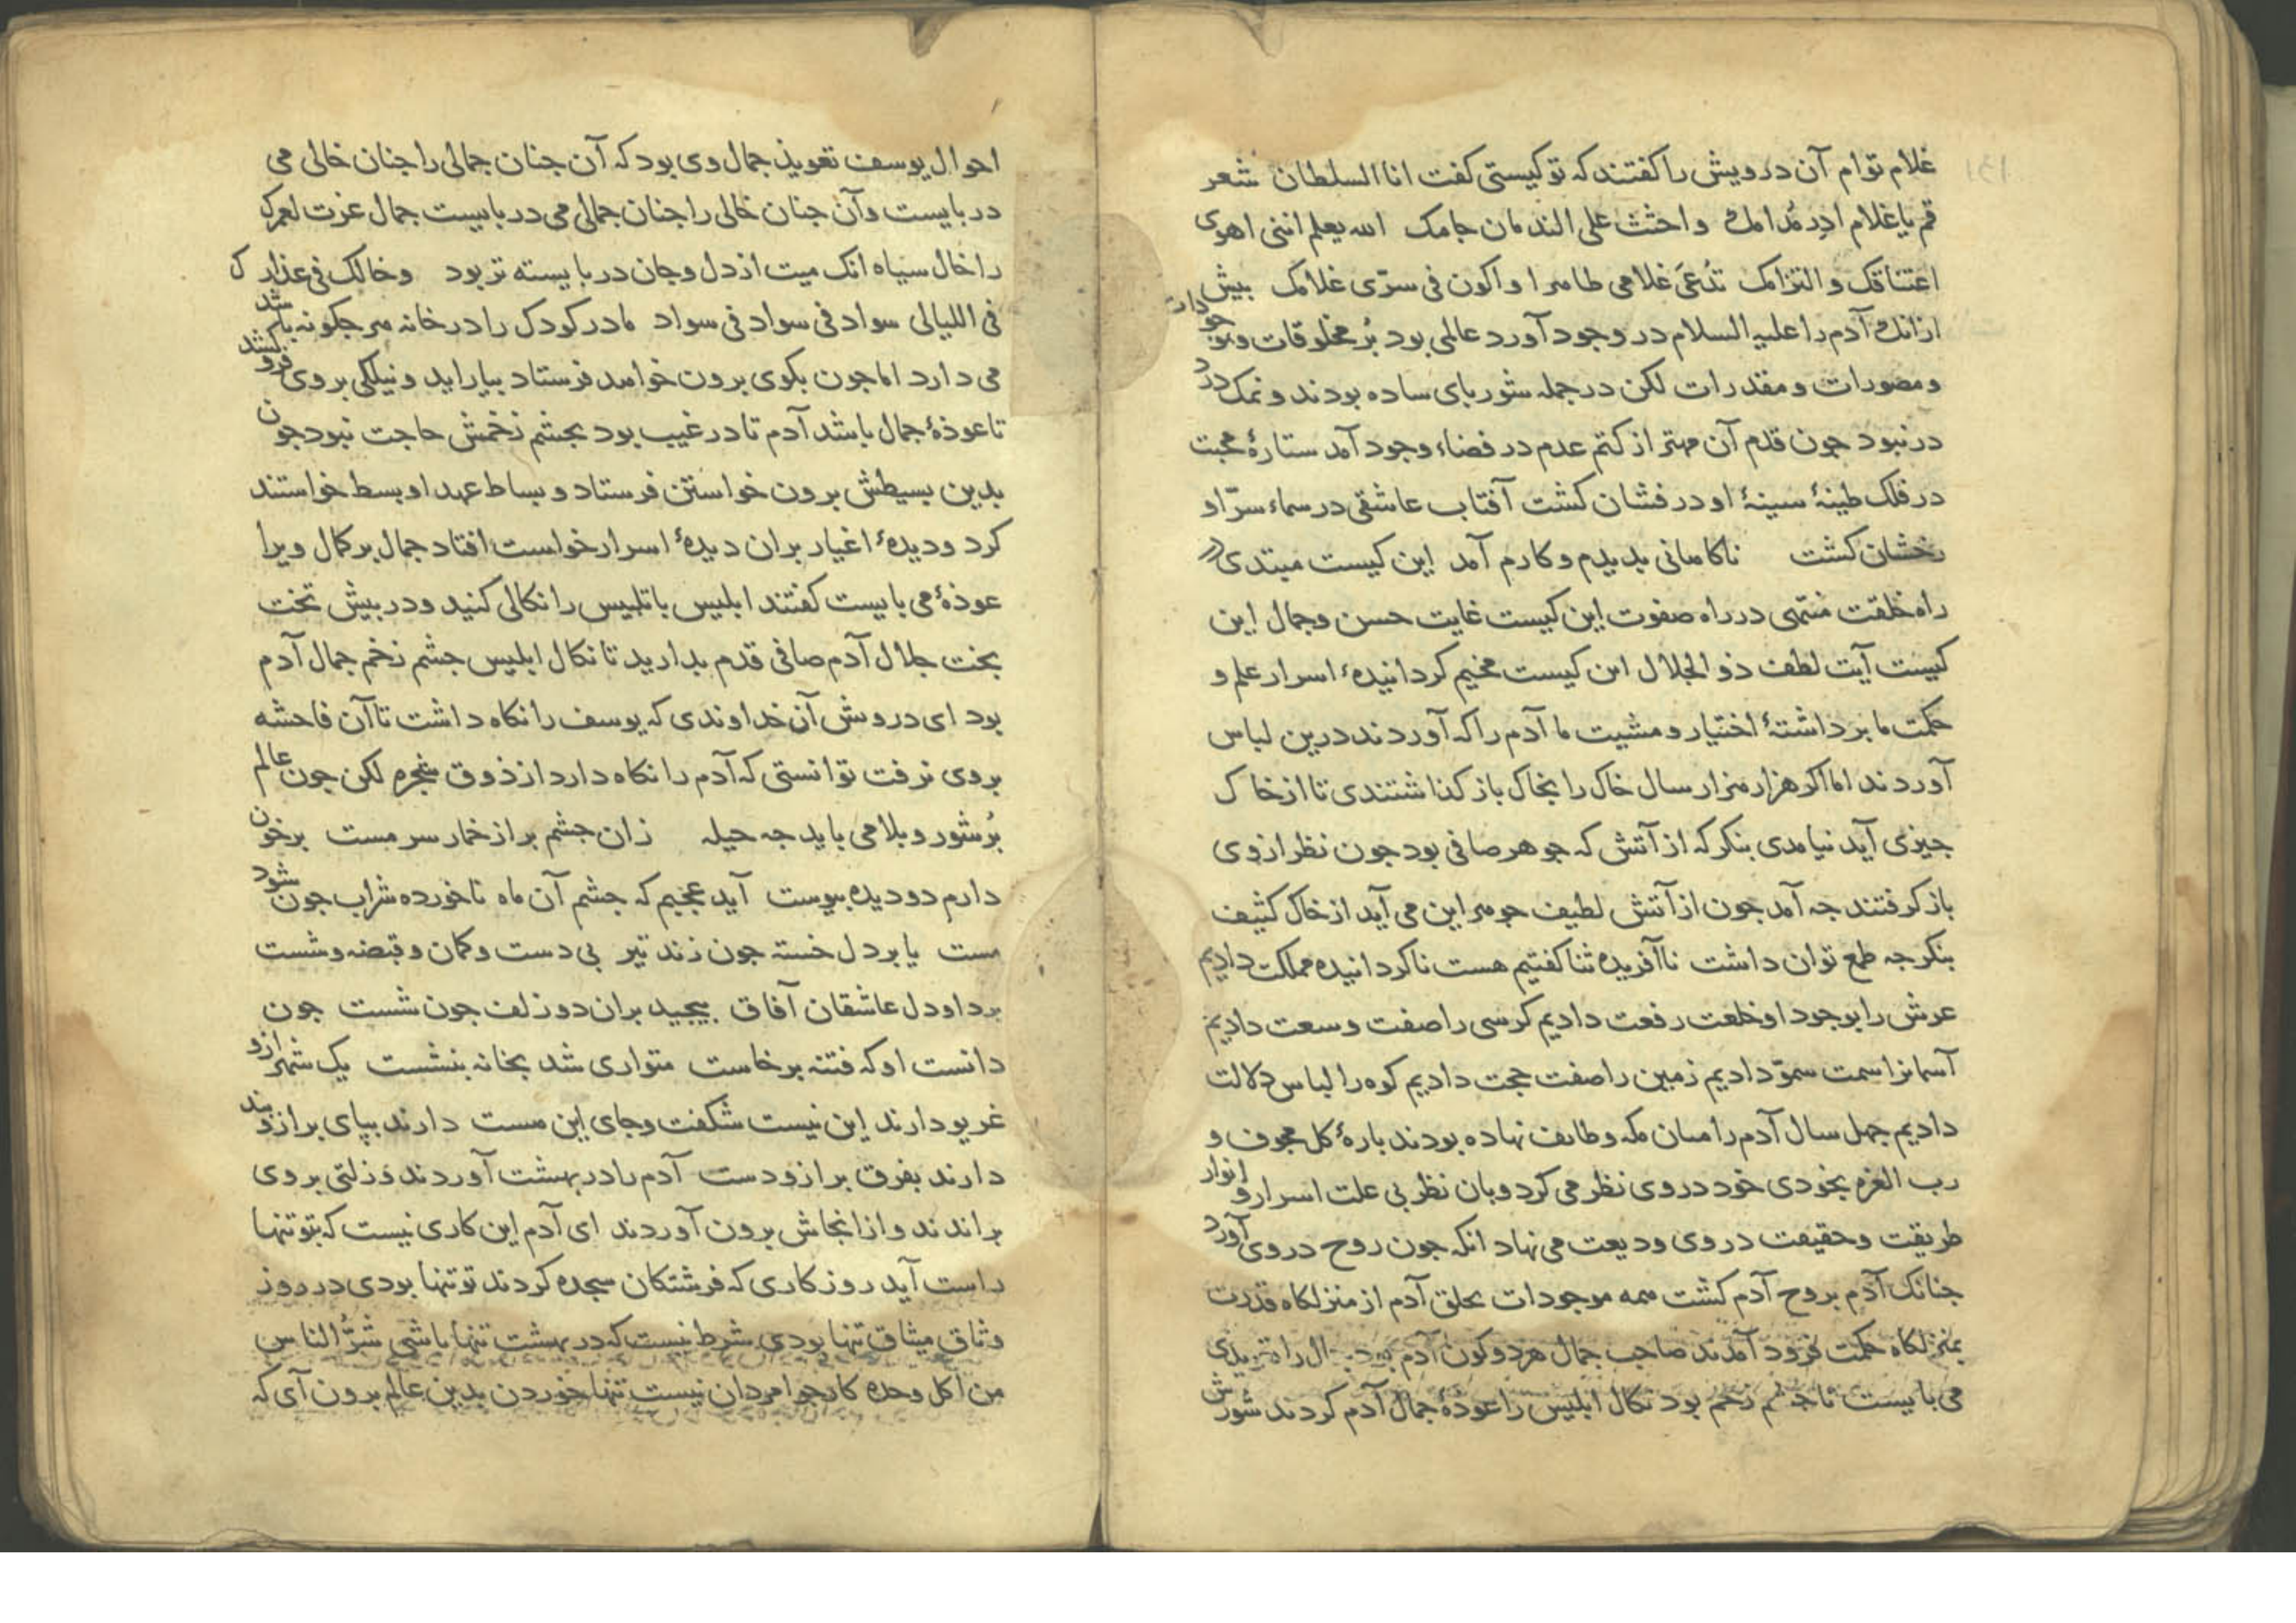 ١٣١
غلام توام آن درویش را کفتند که تو کیستی کفت انا السلطان شعر
قم یا غلام ادر مُدامک واحثث علی الندمان جامک الله یعلم اننی اهوی
اعتناقک والتزامک تُدعَی غلامی ظاهرا واکون فی سرّی غلامک بیش
ازانک آدم را علیه السلام در وجود آورد عالمی بود بُر مخلوقات وموجودات
ومصورات ومقدرات لکن در جمله شوربای ساده بودند ونمک درد
درنبود جون قدم آن مهتر از کتم عدم در فضاء وجود آمد ستارهٔ محبت
در فلک طینهٔ سینهٔ او درفشان کشت آفتاب عاشقی در سماء سرّ او
رخشان کشت ناکامانی بدیدم وکارم آمد این کیست مبتدی در
راه خلقت منتهی در راه صفوت این کیست غایت حسن وجمال این
کیست آیت لطف ذو الجلال این کیست مخیم کردانیدهٔ اسرار علم و
حکمت ما برداشتهٔ اختیار ومشیت ما آدم را که آوردند درین لباس
آوردند اما اکر هزار هزار سال خاک را بخاک باز کذاشتندی تا از خاک
جیزی آید نیامدی بنکر که از آتش که جوهر صافی بود جون نظر ازوی
باز کرفتند جه آمد جون از آتش لطیف جوهر این می آید از خاک کثیف
بنکر جه طمع توان داشت ناآفریده ثنا کفتیم هست ناکردانیده مملکت دادیم
عرش را بوجود او خلعت رفعت دادیم کرسی را صفت وسعت دادیم
آسمانرا سمت سموّ دادیم زمین را صفت حجت دادیم کوه را لباس دلالت
دادیم جهل سال آدم را میان مکه وطایف نهاده بودند بارهٔ کل مجوف و
رب العزه بخودی خود در وی نظر می کرد وبان نظر بی علت اسرار وانوار
طریقت وحقیقت در وی ودیعت می نهاد انکه جون روح در وی آورد
جنانک آدم بروح آدم کشت همه موجودات بخلق آدم از منزلکاه قدرت
بمنزلکاه حکمت فرود آمدند صاحب جمال هر دو کون آدم
می بایست تا جشم زخم بود نکال ابلیس را عوذهٔ جمال آدم کردند شورش
احوال یوسف تعویذ جمال وی بود که آن جنان جمالی را جنان خالی می
در بایست وآن جنان خالی را جنان جمالی می در بایست جمال عزت لعمرک
را خال سیاه انک میت از دل وجان در بایسته تر بود وخالک فی عذارک
فی اللیالی سواد فی سواد فی سواد مادر کودک را در خانه هر جکونه باشد
می دارد اما جون بکوی برون خواهد فرستاد بیاراید ونیلکی بر وی فروکشد
تا عوذهٔ جمال باشد آدم تا در غیب بود بجشم زخمش حاجت نبود جون
بدین بسیطش برون خواستن فرستاد وبساط عهد او بسط خواستند
کرد ودیدهٔ اغیار بران دیدهٔ اسرار خواست افتاد جمال بر کمال ویرا
عوذهٔ می بایست کفتند ابلیس باتلبیس را نکالی کنید ودر بیش تخت
بخت جلال آدم صافی قدم بدارید تا نکال ابلیس جشم زخم جمال آدم
بود ای درویش آن خداوندی که یوسف را نکاه داشت تا آن فاحشه
بروی نرفت توانستی که آدم را نکاه دارد از ذوق شجره لکن جون عالم
بُر شور وبلا می باید جه حیله زان جشم بر از خمار سر مست برخون
دارم دو دیده بیوست آید عجبم که جشم آن ماه ناخورده شراب جون شود
مست یا بر دل خسته جون زند تیر بی دست وکمان وقبضه وشست
برد او دل عاشقان آفاق بیجید بران دو زلف جون شست جون
دانست او که فتنه برخاست متواری شد بخانه بنشست یک شهر ازو
غریو دارند این نیست شکفت وجای این هست دارند ببای بر ازو بند
دارند بفرق بر ازو دست آدم را در بهشت آوردند وزلتی بروی
براندند واز انجاش برون آوردند ای آدم این کاری نیست که بتو تنها
راست آید روز کاری که فرشتکان سجده کردند تو تنها بودی در روز
وثاق میثاق تنها بودی شرط نیست که در بهشت تنها باشی شرُّ الناس
من اکل وحده کار جوامردان نیست تنها خوردن بدین عالم برون آی که